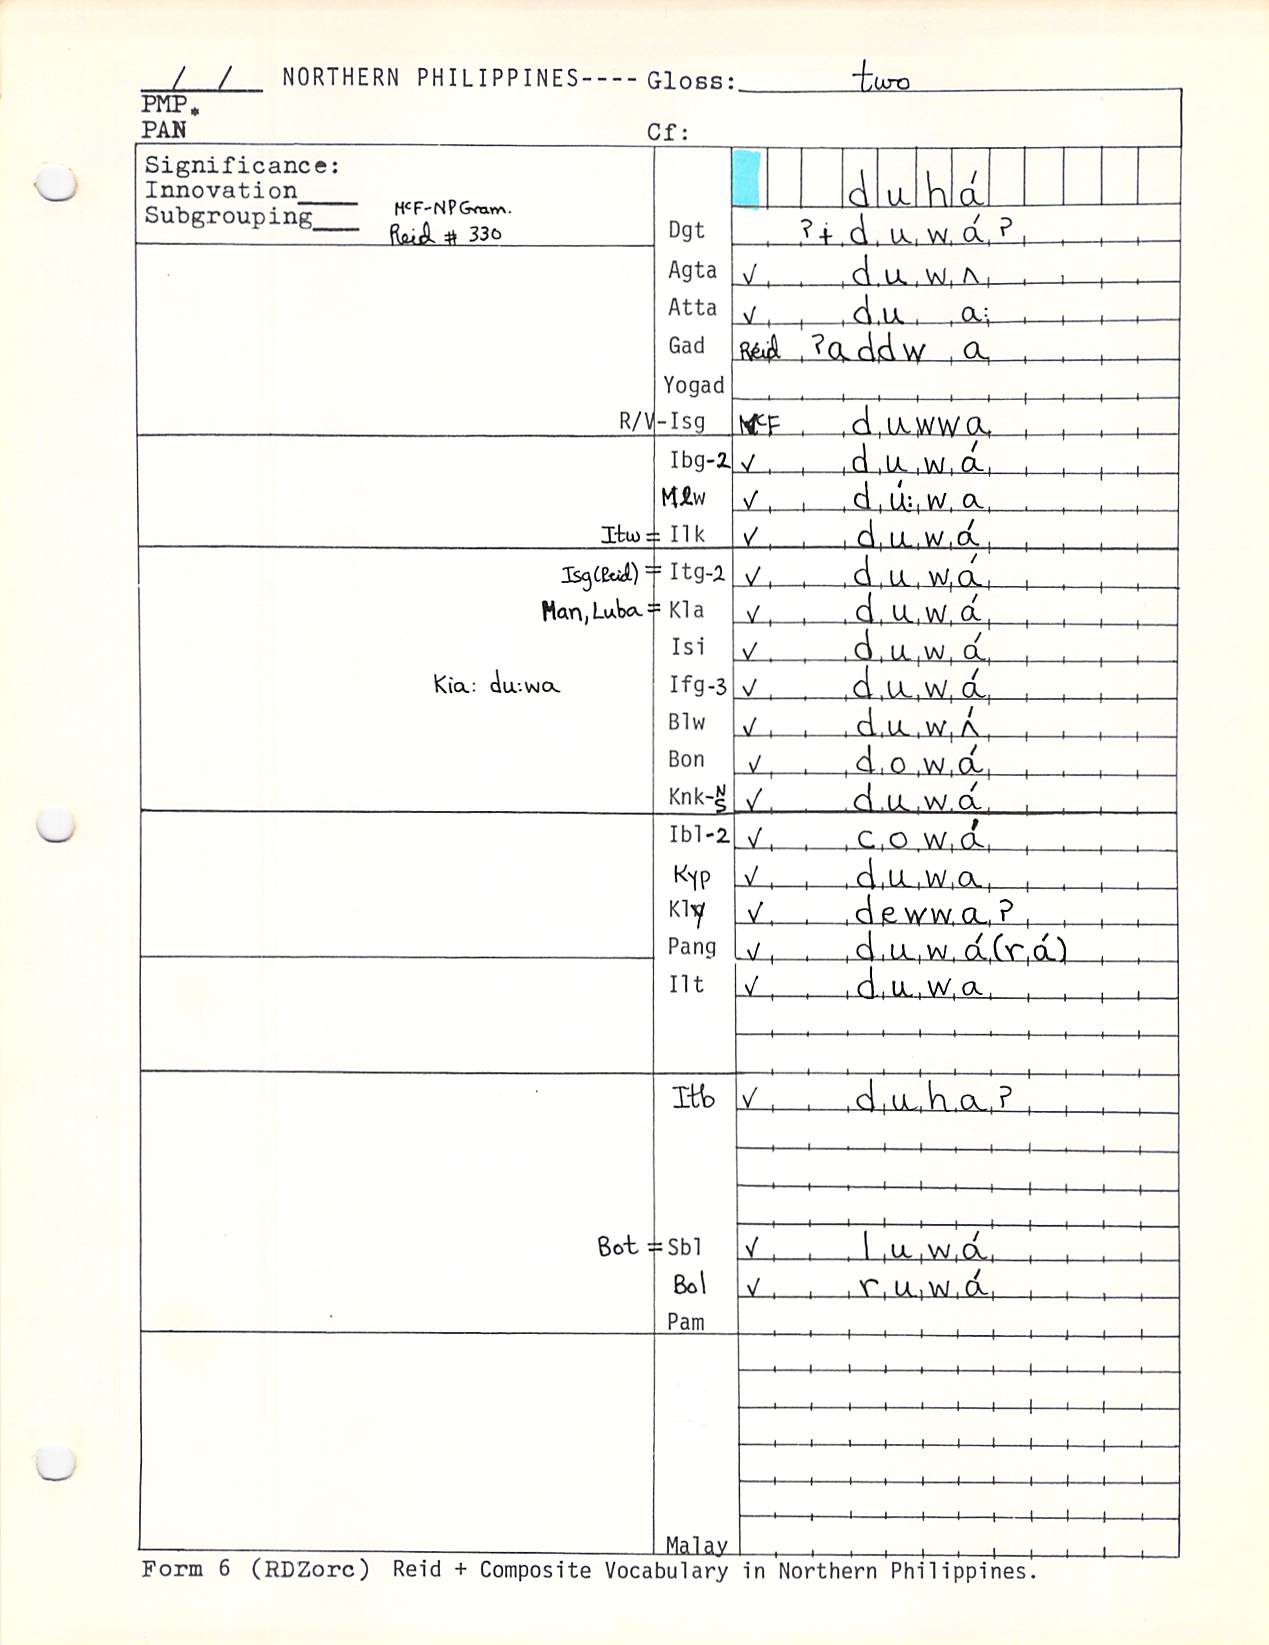 / / NORTHERN PHILIPPINES---- Gloss: two
PMP*
PAN Cf:
Significance:
Innovation____
Subgrouping____
McF-NPGram.
Reid # 330
duhá
Dgt ʔɨduwáʔ
Agta ✓ duwʌ
Atta ✓ du a:
Gad Reid ʔaddw a
Yogad
R/V-Isg McF duwwa
Ibg-2 ✓ duwá
Mlw ✓ dú:wa
Itw = Ilk ✓ duwá
Isg(Reid) = Itg-2 ✓ duwá
Man, Luba = Kla ✓ duwá
Isi ✓ duwá
Kia: du:wa Ifg-3 ✓ duwá
Blw ✓ duwʌ́
Bon ✓ dowá
Knk-N/S ✓ duwá
Ibl-2 ✓ cowá
Kyp ✓ duwa
Kly ✓ dewwaʔ
Pang ✓ duwá(rá)
Ilt ✓ duwa
Itb ✓ duhaʔ
Bot = Sbl ✓ luwá
Bol ✓ ruwá
Pam
Malay
Form 6 (RDZorc) Reid + Composite Vocabulary in Northern Philippines.